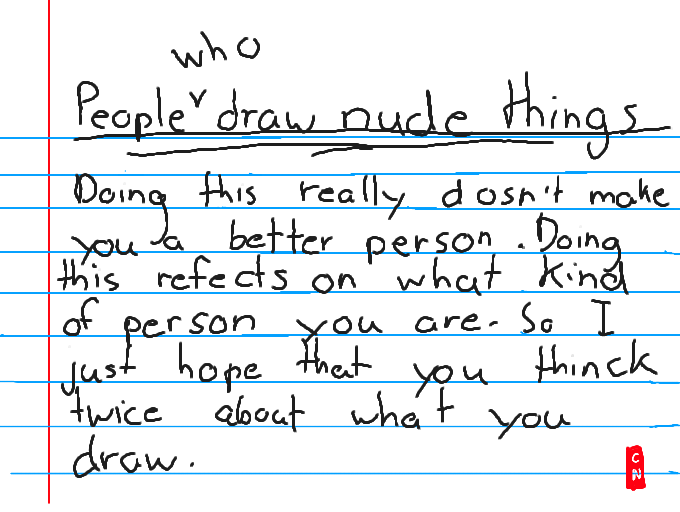 who
People ᵛ draw nude things
Doing this really dosn't make
you a better person. Doing
this refects on what kind
of person you are. So I
just hope that you thinck
twice about what you
draw.
C
N